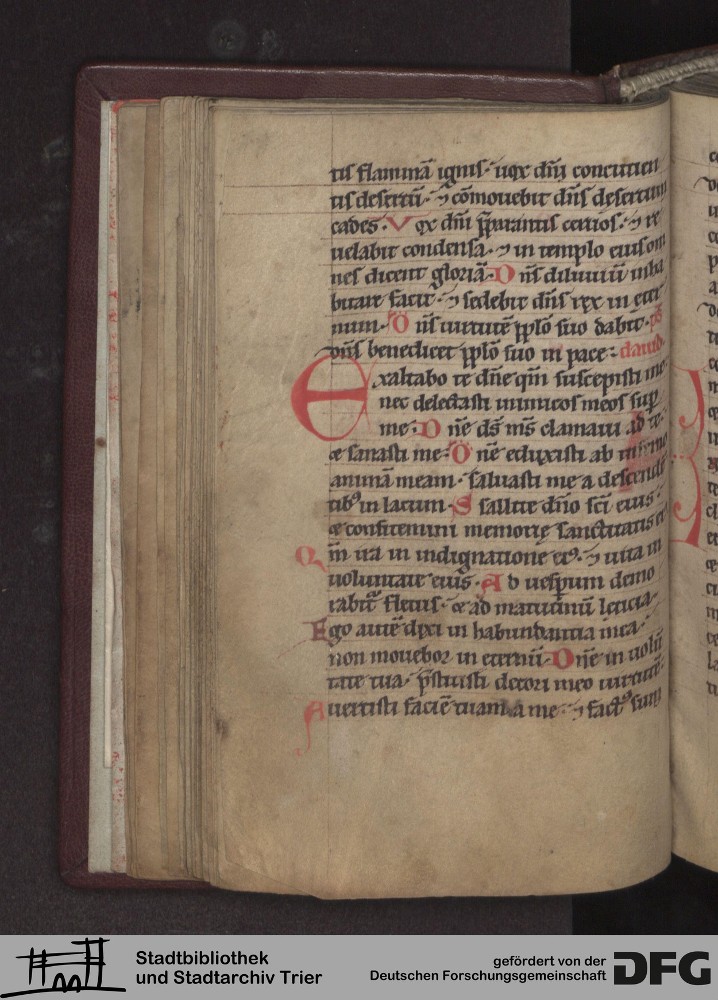 tis flammā ignis· uox dn̄i concucien
tis desertū· ⁊ cōmouebit dn̄s desertum
cades· Vox dn̄i p̄parantis ceruos· ⁊ re
uelabit condensa· ⁊ in templo eius om
nes dicent gloriā· Dn̄s diluuiū inha
bitare facit· ⁊ sedebit dn̄s rex in eter
num· Dn̄s uirtutē pplo suo dabit· ps̄
dn̄s benedicet pplo suo in pace: dauid·
Exaltabo te dn̄e qm̄ suscepisti me·
nec delectasti inimicos meos sup
me· Dn̄e ds̄ ms̄ clamaui ad te·
et sanasti me· Dn̄e eduxisti ab inferno
animā meam· saluasti me a descendē
tibꝰ in lacum· Psallite dn̄o sc̄i eius·
et confitemini memorię sanctitatis ei
Qm̄ ira in indignatione eiꝰ· ⁊ uita in
uoluntate eius· Ad uesperum demo
rabit͛ fletus· et ad matutinū leticia·
Ego autē dixi in habundantia mea·
non mouebor in eternū· Dn̄e in uolū
tate tua· p̄stitisti decori meo uirtutē·
Auertisti faciē tuam a me· ⁊ factꝰ sum
Stadtbibliothek
und Stadtarchiv Trier
gefördert von der
Deutschen Forschungsgemeinschaft
DFG